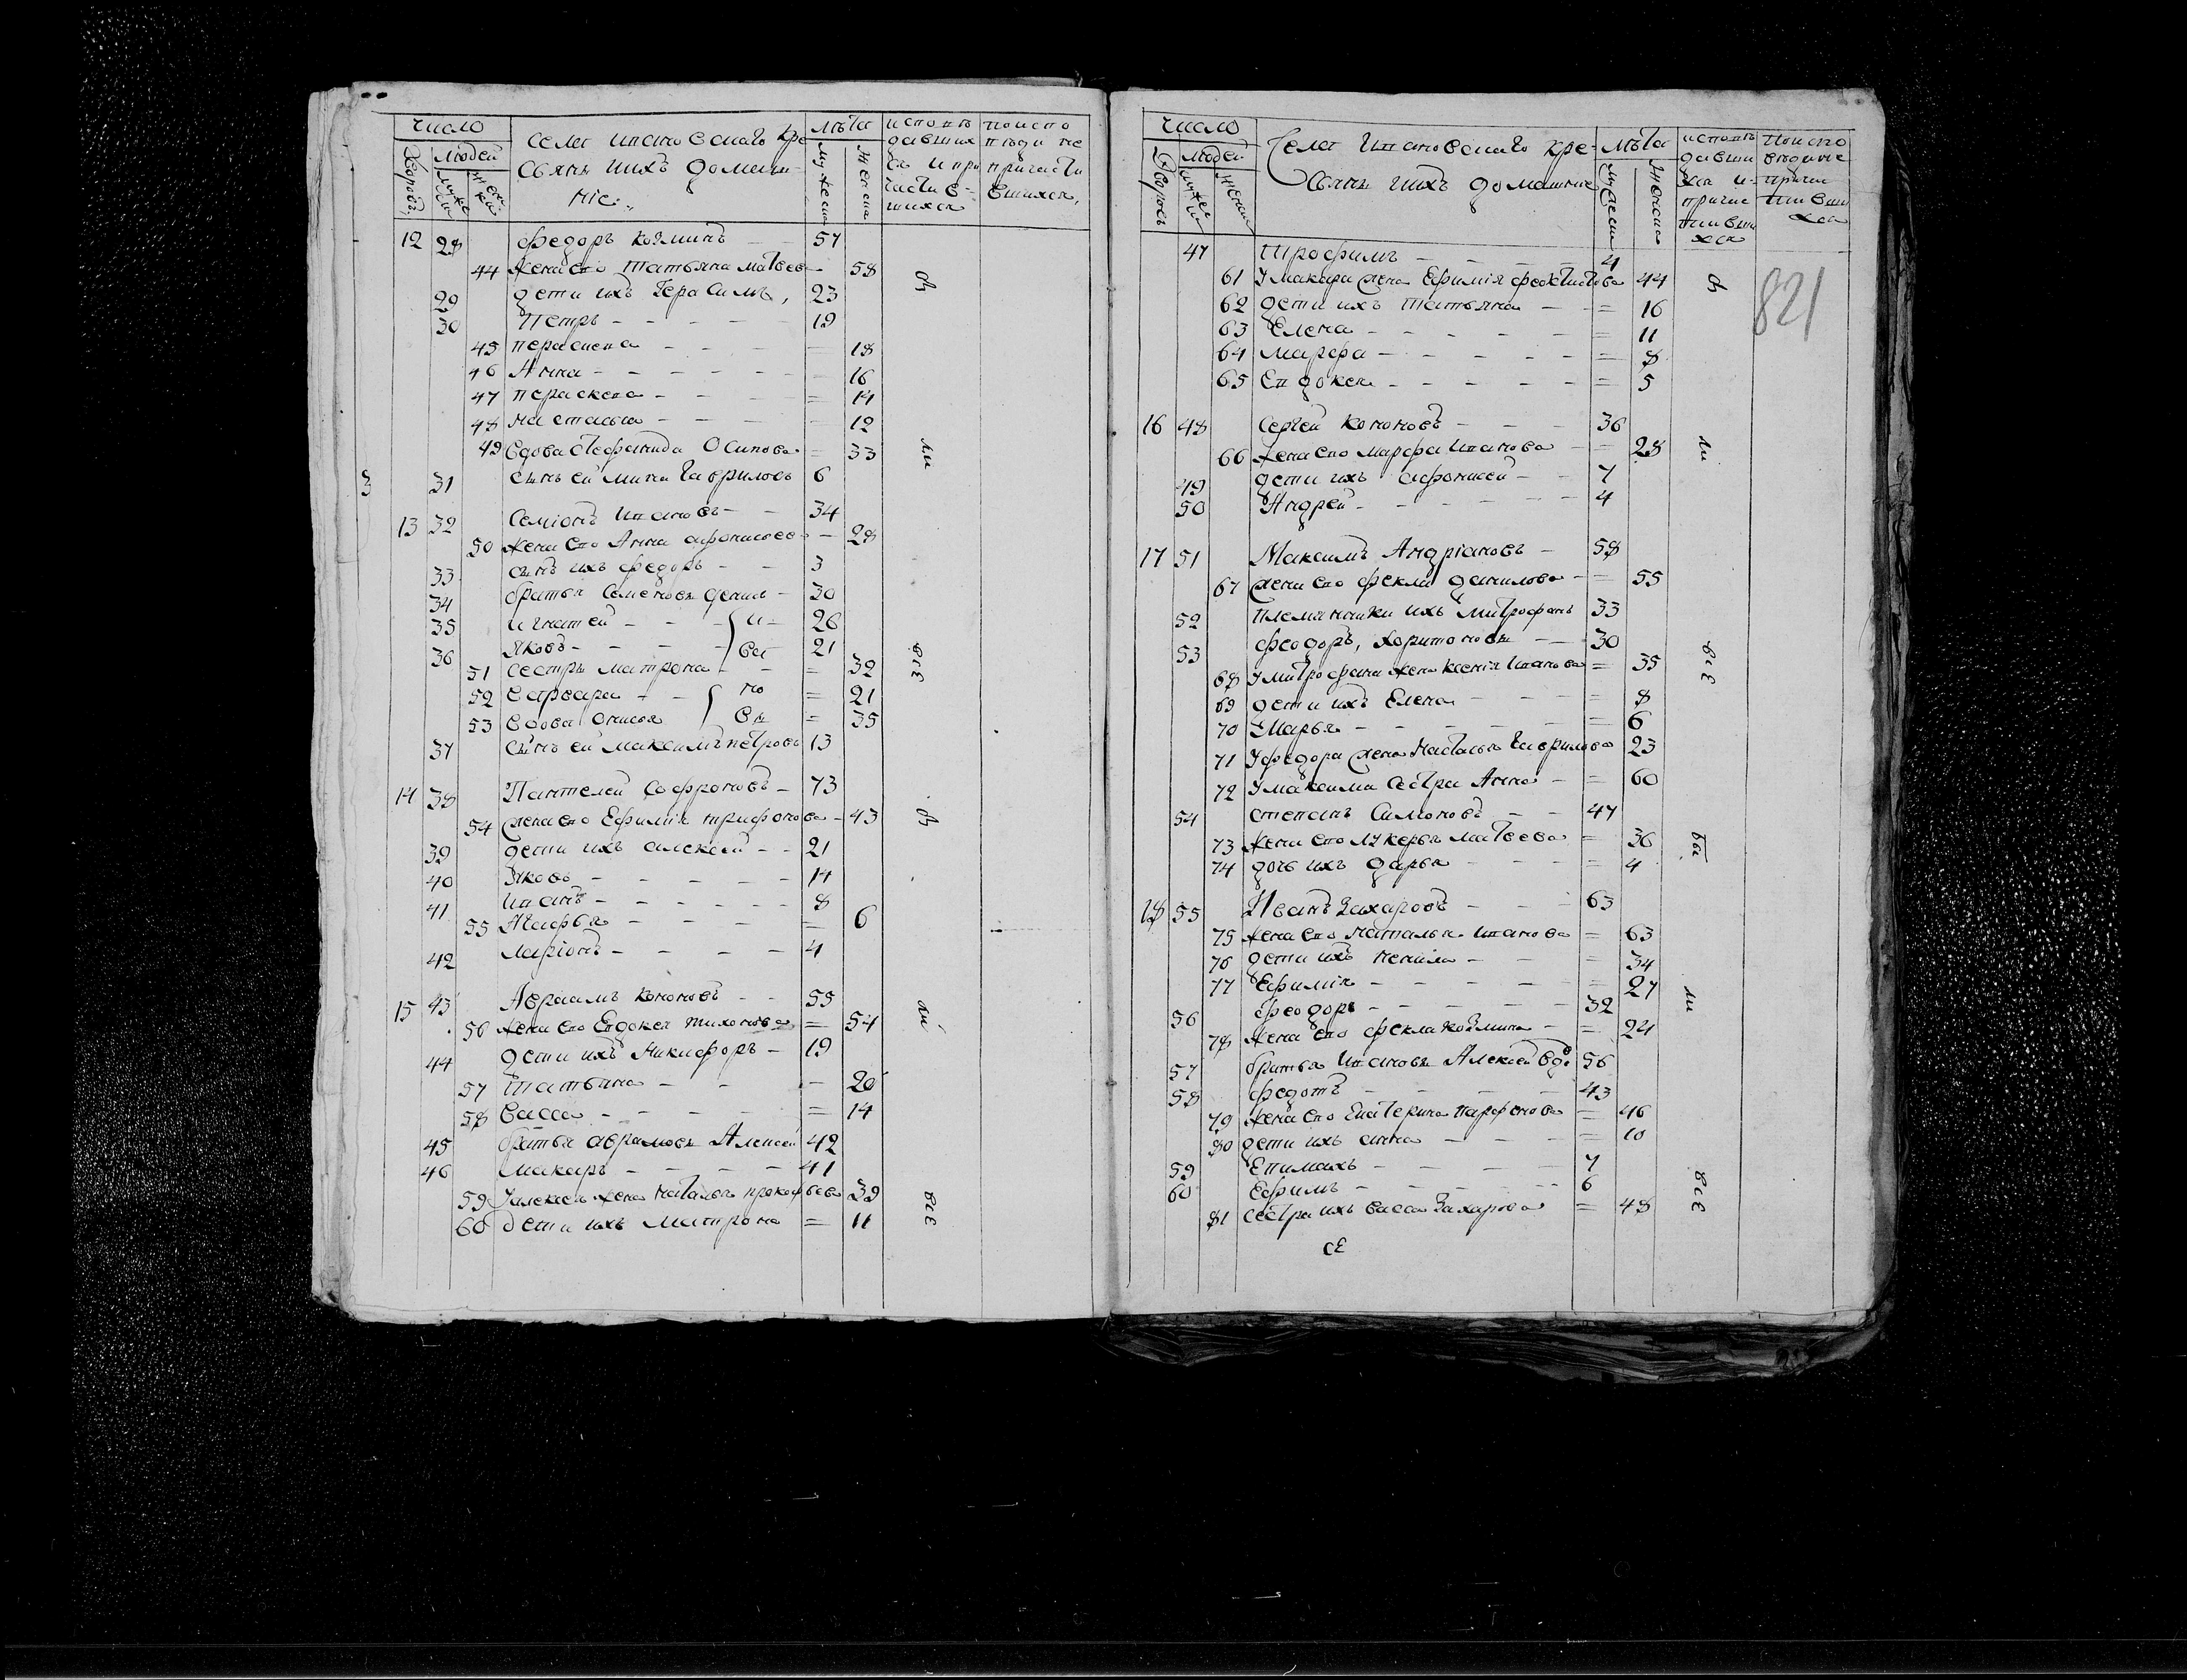 число
села ивановскаго кре
стьяне и ихъ домаш-
ніе
лѣта
исповѣ
давших
ся и при
частив-
шихся
по испо
вѣди не
причасти
вшихся,
дворовъ
людей
мужеска
женска
мужеска
женска
12 28 федоръ козминъ — 57
44 жена его татьяна матвеева — 58
29 дети ихъ Герасимъ, 23
30 Петръ — 19
45 параскева — 18
46 Анна — 16
47 параскева = 14
48 настасья — 12
49 вдова Стефанида Осипова = 33
3 31 сынъ ей мина Гавриловъ 6
13 32 Семіонъ Ивановъ — 34
50 жена его Анна афонасьев — 28
33 сынъ ихъ федоръ — 3
34 братья Семеновы данил — 30
35 игнатей — и- 26
36 Яковъ — ва 21
51 сестры матрона — = 32
52 варвара — но = 21
53 вдова Онисья вы = 35
37 сынъ ей максимъ петровъ 13
14 38 Пантелей Софроновъ — 73
54 жена его Ефимія трифонова — 43
39 дети ихъ алексей — 21
40 Яковъ — 14
41 Иванъ — 8
55 Агафья = 6
42 ларіонъ — 4
15 43 Авраамъ кононовъ — 55
56 жена его Евдокея тихонова = 54
44 дети ихъ Никифоръ — 19
57 татьяна — 20
58 васса = 14
45 братья аврамовы Алексей 42
46 макаръ — 41
59 У алексея жена наталья прокофьева 39
60 дети ихъ матрона = 11
вси
вси
821
число
Села Ивановскаго кре-
стьяне и ихъ домашние
лѣта
исповѣ
давши
хся и-
причас
тивши
хся
по испо
ведине
причас
тивши
хся
дворовъ
людей
мужеска
женска
47 Трофимъ — 4
61 У макара жена Ефимія феоктистова 44
62 дети ихъ татьяна — = 16
63 Елена = 11
64 марфа — = 8
65 Евдокея — = 5
16 48 Сергей кононовъ — 36
66 жена его марфа иванова = 28
49 дети ихъ афонасей — 7
50 Андрей — 4
17 51 Максимъ Андріановъ — 58
67 жена его фекла данилова = 55
52 племянники ихъ митрофанъ 33
53 феодоръ, харитоновы — 30
68 У митрофана жена ксенія иванова = 35
69 дети ихъ Елена = 8
70 Марья = 6
71 У федора жена наталья Гаврилова 23
72 У максима сестра Анна = 60
54 степанъ Симоновъ — 47
73 жена его лукерья матвеева = 36
74 дочь ихъ дарья = 4
18 55 Иванъ Захаровъ — 63
75 жена его наталья иванова = 63
76 дети ихъ ненила = 34
77 Ефимія = 27
56 феодоръ — 32
78 жена его фекла козмина = 24
57 братья Ивановы Алексей вдо 56
58 федотъ — 43
79 жена его Екатерина парфенова = 46
80 дети ихъ анна = 10
59 Епимахъ — 7
60 Ефимъ — 6
81 сестра ихъ васса Захарова = 48
вси
бы
ли
вси